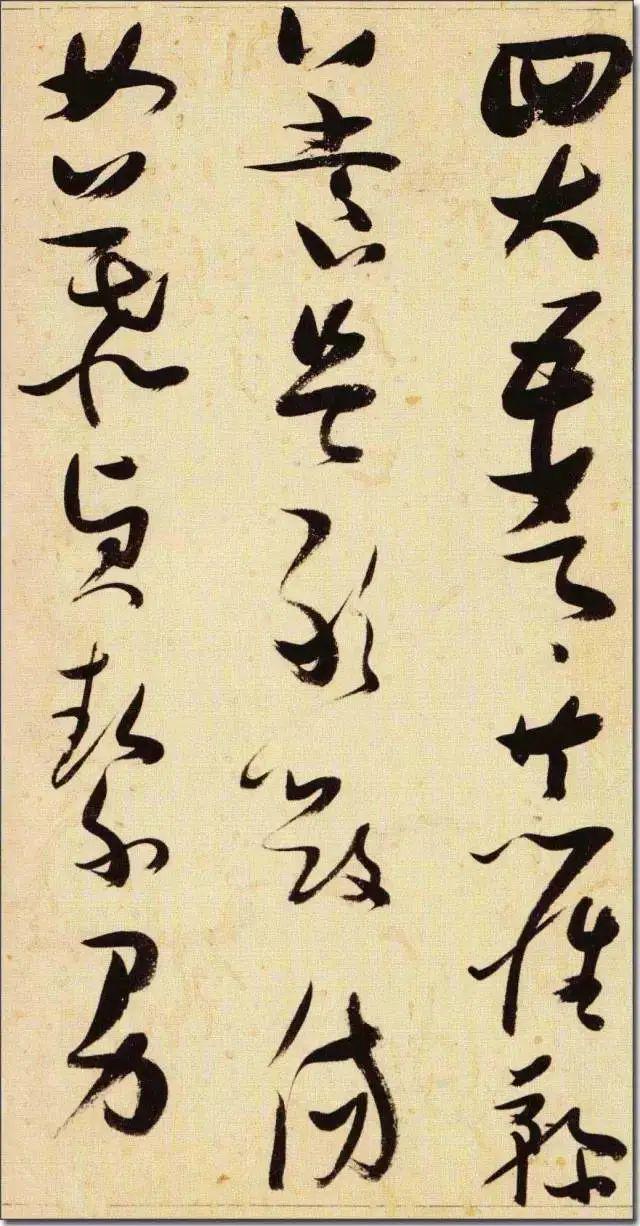 四大五常恭惟鞠
養豈敢毀傷
女慕貞絜男